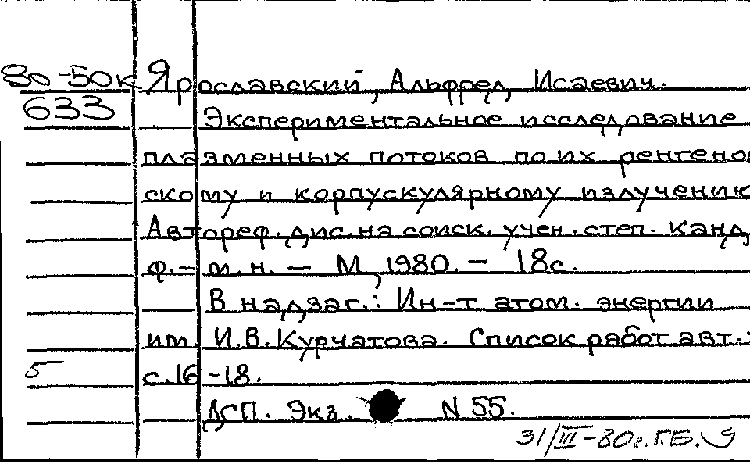 80-50к Ярославский, Альфред Исаевич.
633 Экспериментальное исследование
плазменных потоков по их рентенов
скому и корпускулярному излучению
Автореф. дис. на соиск. учен. степ. канд.
ф.-м.н. - М, 1980. - 18с.
В надзаг.: Ин-т атом. энергии
им. И.В. Курчатова. Список работ авт.:
5 с.16-18.
ДСП. Экз. N 55.
31/III-80г. ГБ.